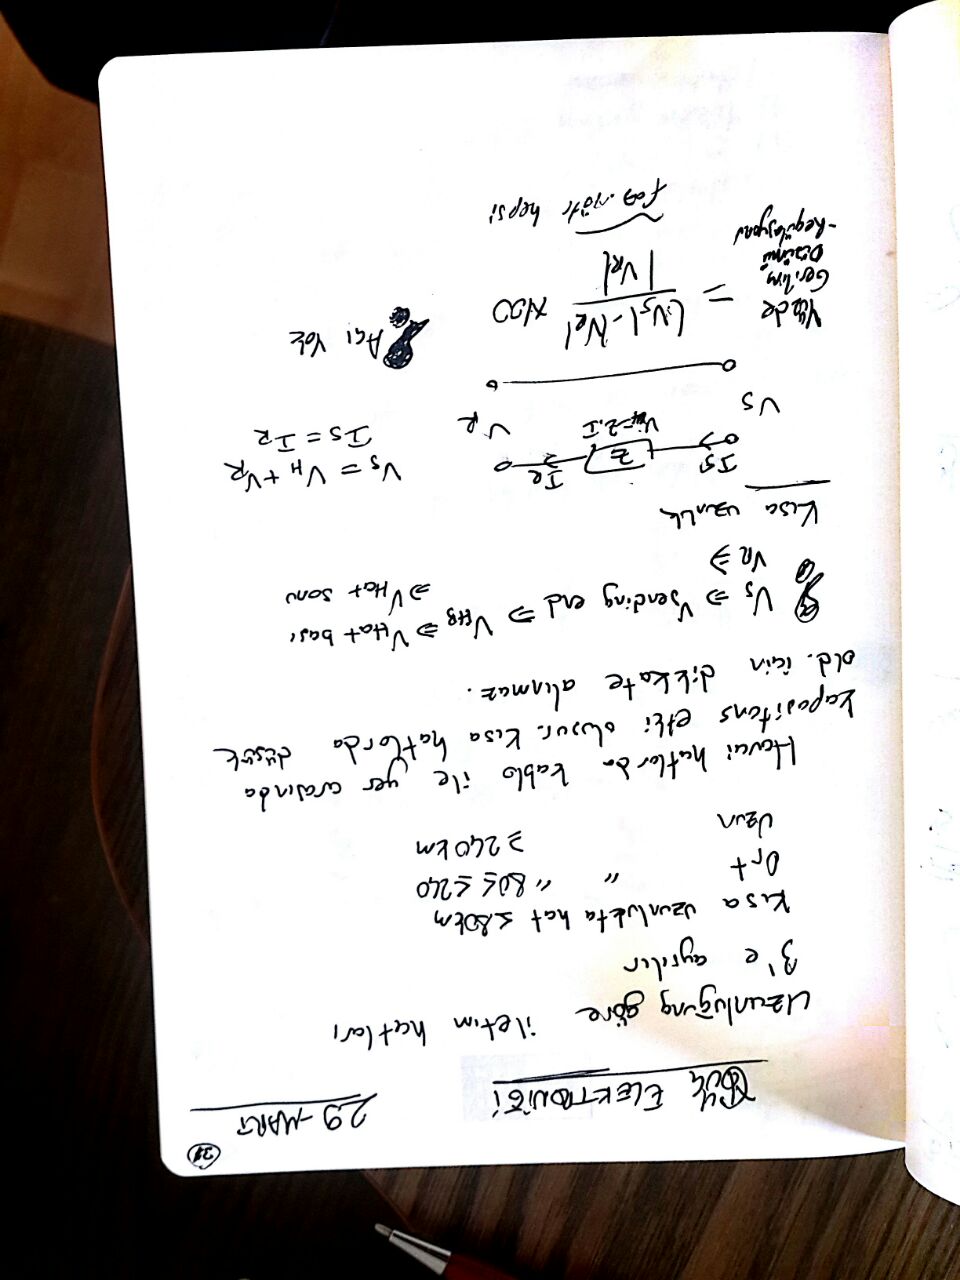 21
GÜÇ ELEKTRONİĞİ 29-MART
Uzunluğuna göre iletim hatları
3'e ayrılır
Kısa uzunlukta hat ≤80km
Ort " " 80≤ ≤240
Uzun ≥240km
Havai hatlarda kablo ile yer arasında
kapasitans etki oluşur. Kısa hatlarda düşük
old. için dikkate alınmaz.
VS ⇒ Vsending end ⇒ VHB ⇒ VHat başı
VR ⇒ ⇒ VHat sonu
Kısa uzunluk
IS Z IR
VS = VH + VR
IS = IR
VS VR
Yüzde
Gerilim
Düşümü
-Regülasyon
= |VS|-|VR| / |VR| x100
Açı Yok
faz-nötr hepsi